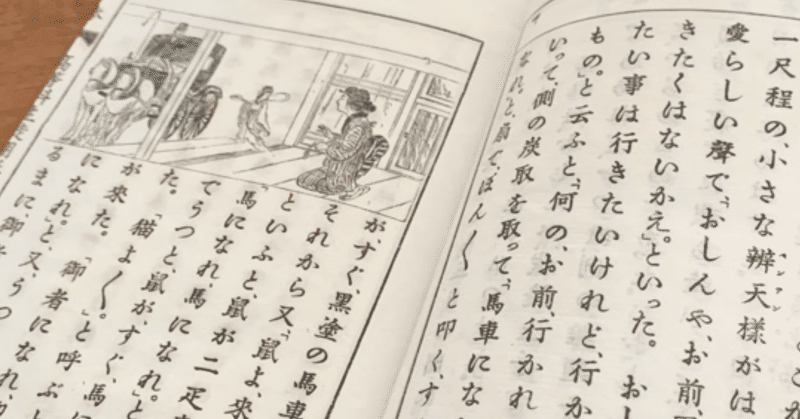 一尺程の、小さな辨天様がは
ベンテン
愛らしい聲で「おしんや、お前
きたくはないかえ。」といった。 おし
たい事は行きたいけれど、行か
もの。」と云ふと、「何の、お前、行かれ
いって、側の炭取を取って、「馬車にな
なれ。」と、扇で、ぽん〱と叩く、す
が、すぐ、黒塗の馬車
それから又、「鼠よ、来
といふと、鼠が二疋
「馬になれ、馬になれ。」と
でうつと、鼠が、すぐ、馬に
た。 「猫よ〱。」と呼ぶ
が来た。 「御者になれ、
になれ。」と、又、うつ
るまに、御者